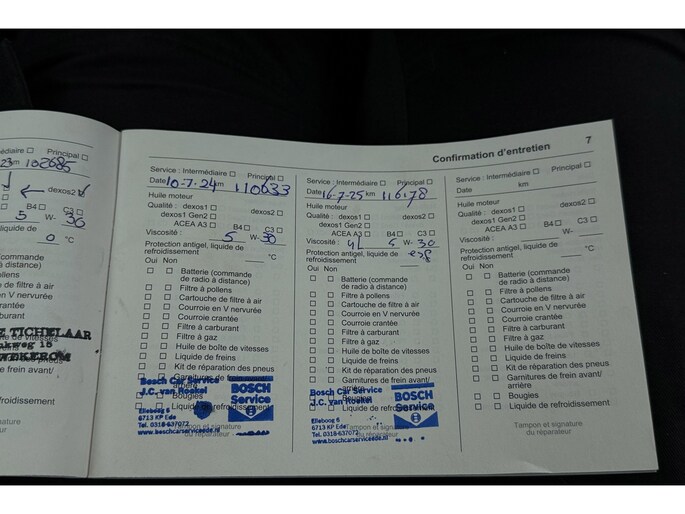 7
Confirmation d'entretien
médiaire Principal
km 102685
dexos2
B4 C3
5 W- 30
liquide de
0 °C
Batterie (commande
à distance)
pollens
de filtre à air
en V nervurée
crantée
carburant
TICHELAAR
WEKEROM
de frein avant/
refroidissement
signature
Service : Intermédiaire Principal
Date 10-7-24 km 110633
Huile moteur
Qualité : dexos1 dexos2
dexos1 Gen2
ACEA A3 B4 C3
Viscosité : 5 W- 30
Protection antigel, liquide de
refroidissement °C
Oui Non
Batterie (commande
de radio à distance)
Filtre à pollens
Cartouche de filtre à air
Courroie en V nervurée
Courroie crantée
Filtre à carburant
Filtre à gaz
Huile de boîte de vitesses
Liquide de freins
Kit de réparation des pneus
Garnitures de frein avant/
arrière
Bougies
Liquide de refroidissement
Bosch Car Service
J.C. van Roekel
BOSCH
Service
Elleboog 6
6713 KP Ede
Tel. 0318-637072
www.boschcarserviceede.nl
Tampon et signature
du réparateur
Service : Intermédiaire Principal
Date 16-7-25 km 116178
Huile moteur
Qualité : dexos1 dexos2
dexos1 Gen2
ACEA A3 B4 C3
Viscosité : 5 W- 30
Protection antigel, liquide de
refroidissement °C
Oui Non
Batterie (commande
de radio à distance)
Filtre à pollens
Cartouche de filtre à air
Courroie en V nervurée
Courroie crantée
Filtre à carburant
Filtre à gaz
Huile de boîte de vitesses
Liquide de freins
Kit de réparation des pneus
Garnitures de frein avant/
arrière
Bougies
Liquide de refroidissement
Bosch Car Service
J.C. van Roekel
BOSCH
Service
Elleboog 6
6713 KP Ede
Tel. 0318-637072
www.boschcarserviceede.nl
Tampon et signature
du réparateur
Service : Intermédiaire Principal
Date km
Huile moteur
Qualité : dexos1 dexos2
dexos1 Gen2
ACEA A3 B4 C3
Viscosité : W-
Protection antigel, liquide de
refroidissement °C
Oui Non
Batterie (commande
de radio à distance)
Filtre à pollens
Cartouche de filtre à air
Courroie en V nervurée
Courroie crantée
Filtre à carburant
Filtre à gaz
Huile de boîte de vitesses
Liquide de freins
Kit de réparation des pneus
Garnitures de frein avant/
arrière
Bougies
Liquide de refroidissement
Tampon et signature
du réparateur